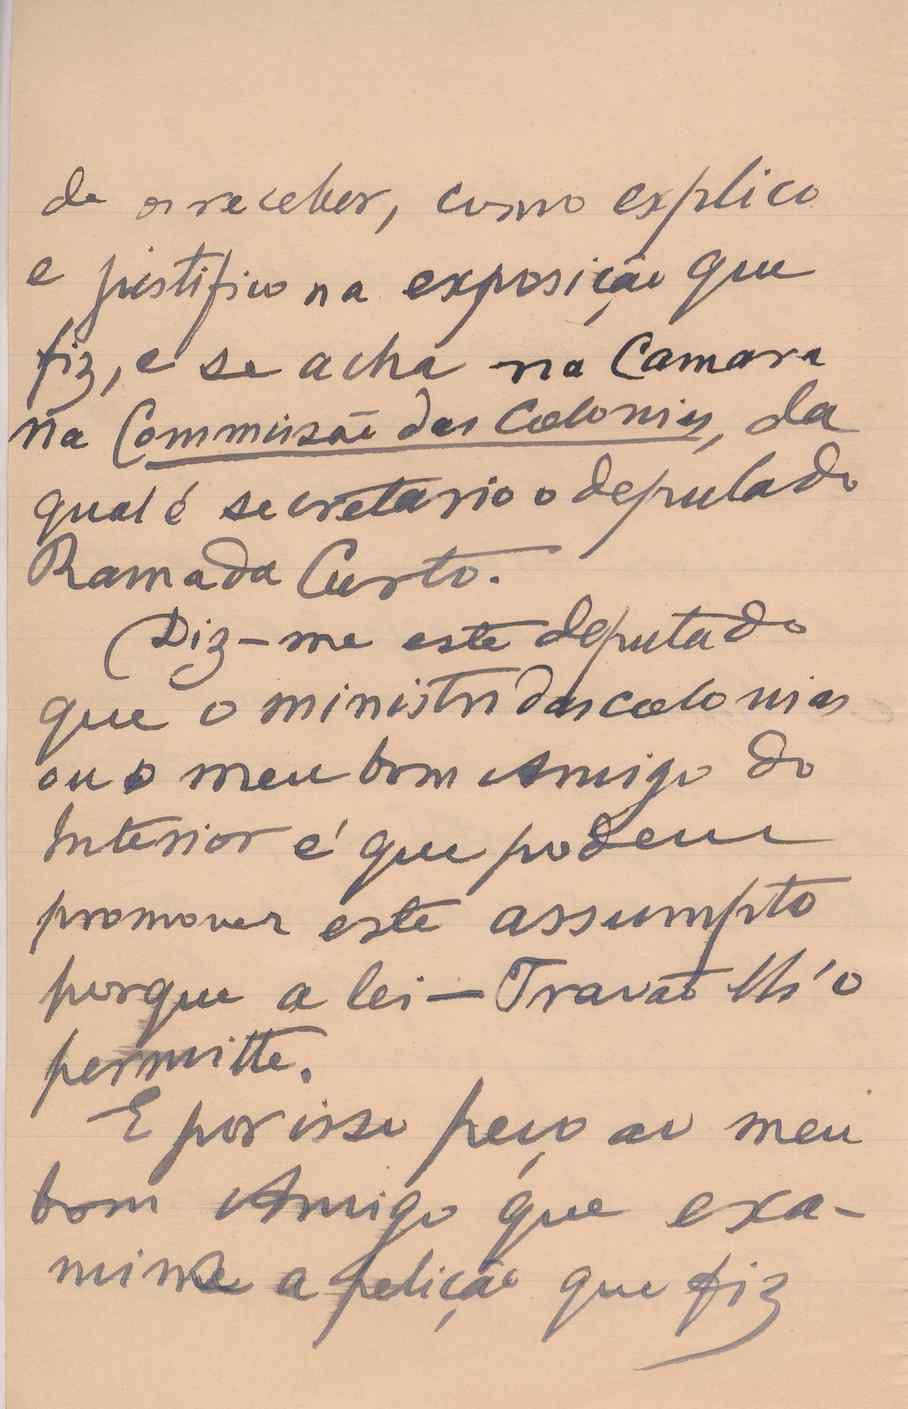 de os receber, como explico
e justifico na exposição que
fiz, e se acha na Camara
na Commissão das Colonias, da
qual é secretario o deputado
Ramada Curto.
Diz-me este deputado
que o ministro das colonias
ou o meu bom Amigo do
Interior é que podem
promover este assumpto
porque a lei-Travão lh'o
permitte.
E por isso peço ao meu
bom Amigo que exa-
mine a petição que fiz